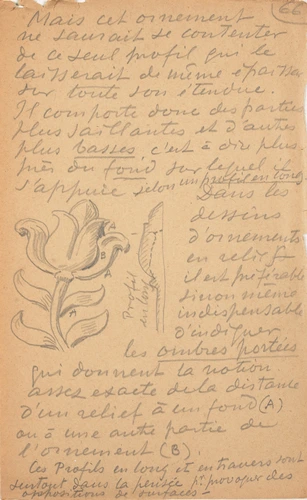 66
Mais cet ornement
ne saurait se contenter
de ce seul profil qui le
laisserait de même épaisseur
sur toute son étendue.
Il comporte donc des parties
plus saillantes et d'autres
plus basses c'est à dire plus
près du fond sur lequel il
s'appuie selon un profil en long
Dans les
dessins
d'ornements
en relief
il est préférable
sinon même
indispensable
d'indiquer
les ombres portées
qui donnent la notion
assez exacte de la distance
d'un relief à un fond (A)
ou à une autre partie de
l'ornement (B).
Ces Profils en long et en travers sont
surtout dans la pensée pr provoquer des
oppositions de surfaces.
Profil
en long
B
A
A